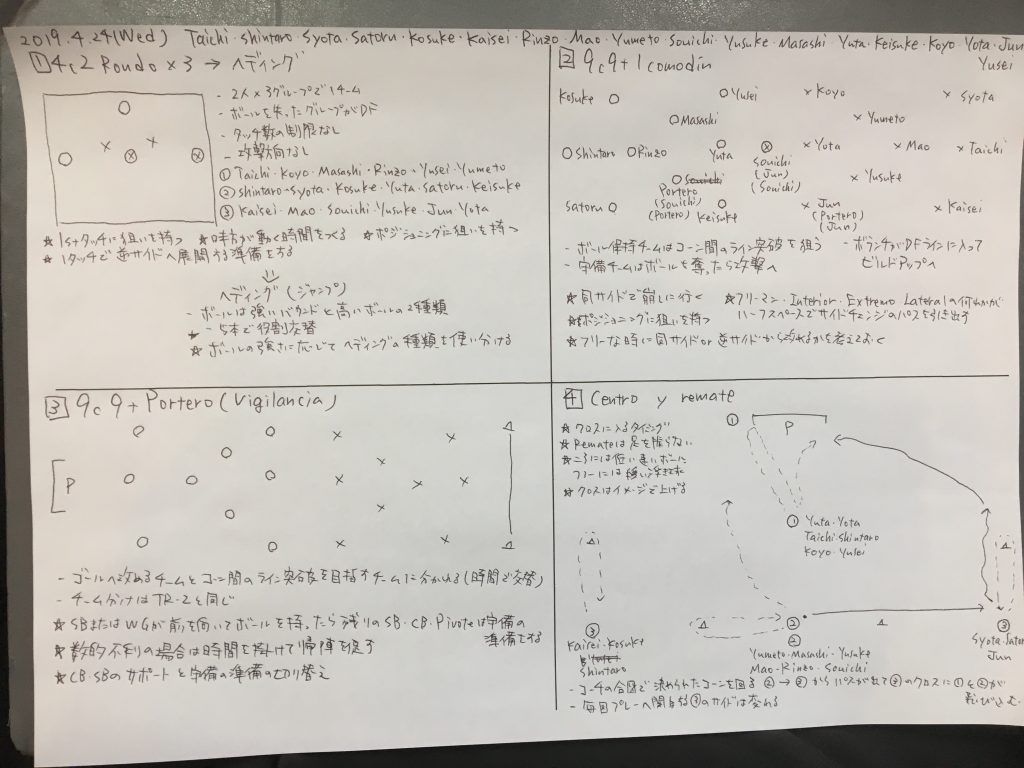 2019.4.24(Wed) Taichi・Shintaro・Syota・Satoru・Kosuke・Kaisei・Rinzo・Mao・Yumeto・Souichi・Yusuke・Masashi・Yuta・Keisuke・Koyo・Yota・Jun
Yusei
1 4c2 Rondo×3 → ヘディング
- 2人×3グループで1チーム
- ボールを失ったグループがDF
- タッチ数の制限なし
- 攻撃方向なし
① Taichi・Koyo・Masashi・Rinzo・Yusei・Yumeto
② Shintaro・Syota・Kosuke・Yuta・Satoru・Keisuke
③ Kaisei・Mao・Souichi・Yusuke・Jun・Yota
★1stタッチに狙いを持つ ★味方が動く時間をつくる ★ポジショニングに狙いを持つ
★1タッチで逆サイドへ展開する準備をする
⇓
ヘディング(ジャンプ)
- ボールは強いバウンドと高いボールの2種類
- 5本で役割交替
★ボールの強さに応じてヘディングの種類を使い分ける
2 9c9+1comodin
Kosuke ○ ○Yusei ×Koyo ×Syota
○Masashi ×Yumeto
○Shintaro ○Rinzo Yuta Souichi ×Yota ×Mao ×Taichi
(Jun)
(Souichi)
Portero
(Souichi)
(Portero)
×Yusuke
Satoru ○ Keisuke ×Jun ×Kaisei
(Portero)
(Jun)
- ボール保持チームはコーン間のライン突破を狙う - ボランチがDFラインに入って
- 守備チームはボールを奪ったら攻撃へ ビルドアップへ
★同サイドで崩しに行く ★フリーマン・Interior・Extremo Lateralの何れかが
ハーフスペースでサイドチェンジのパスを引き出す
★ポジショニングに狙いを持つ
★フリーな時に同サイドor逆サイドから攻めれるかを考えておく
3 9c9+Portero(Vigilancia)
P
- ゴールへ攻めるチームとコーン間のライン突破を目指すチームに分かれる(時間で交替)
- チーム分けはTR-2と同じ
★SBまたはWGが前を向いてボールを持ったら残りのSB・CB・Pivoteは守備の
準備をする
★数的不利の場合は時間を掛けて帰陣を促す
★CB・SBのサポートと守備の準備の切り替え
4 Centro y remate
★クロスに入るタイミング
★Remateは足を振らない
★ニアには低い速いボール
ファーには緩い浮き球
★クロスはイメージで上げる
① P
① Yuta・Yota
Taichi・Shintaro
Koyo・Yusei
③
Kairei・Kosuke
Shintaro
②
②
Yumeto・Masashi・Yusuke
Mao・Rinzo・Souichi
③
Syota・Sator
Jun
- コーチの合図で決められたコーンを回る ②→③からパスが出て③のクロスに①と②が
飛び込む
- 毎回プレーへ関わる③のサイドは変わる